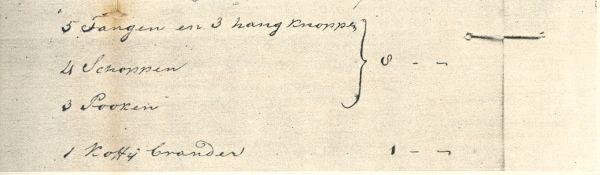 5 Tangen en 3 hang knoppe
4 Schoppen } 8 - -
3 Pooken
1 Koffij brander 1 - -